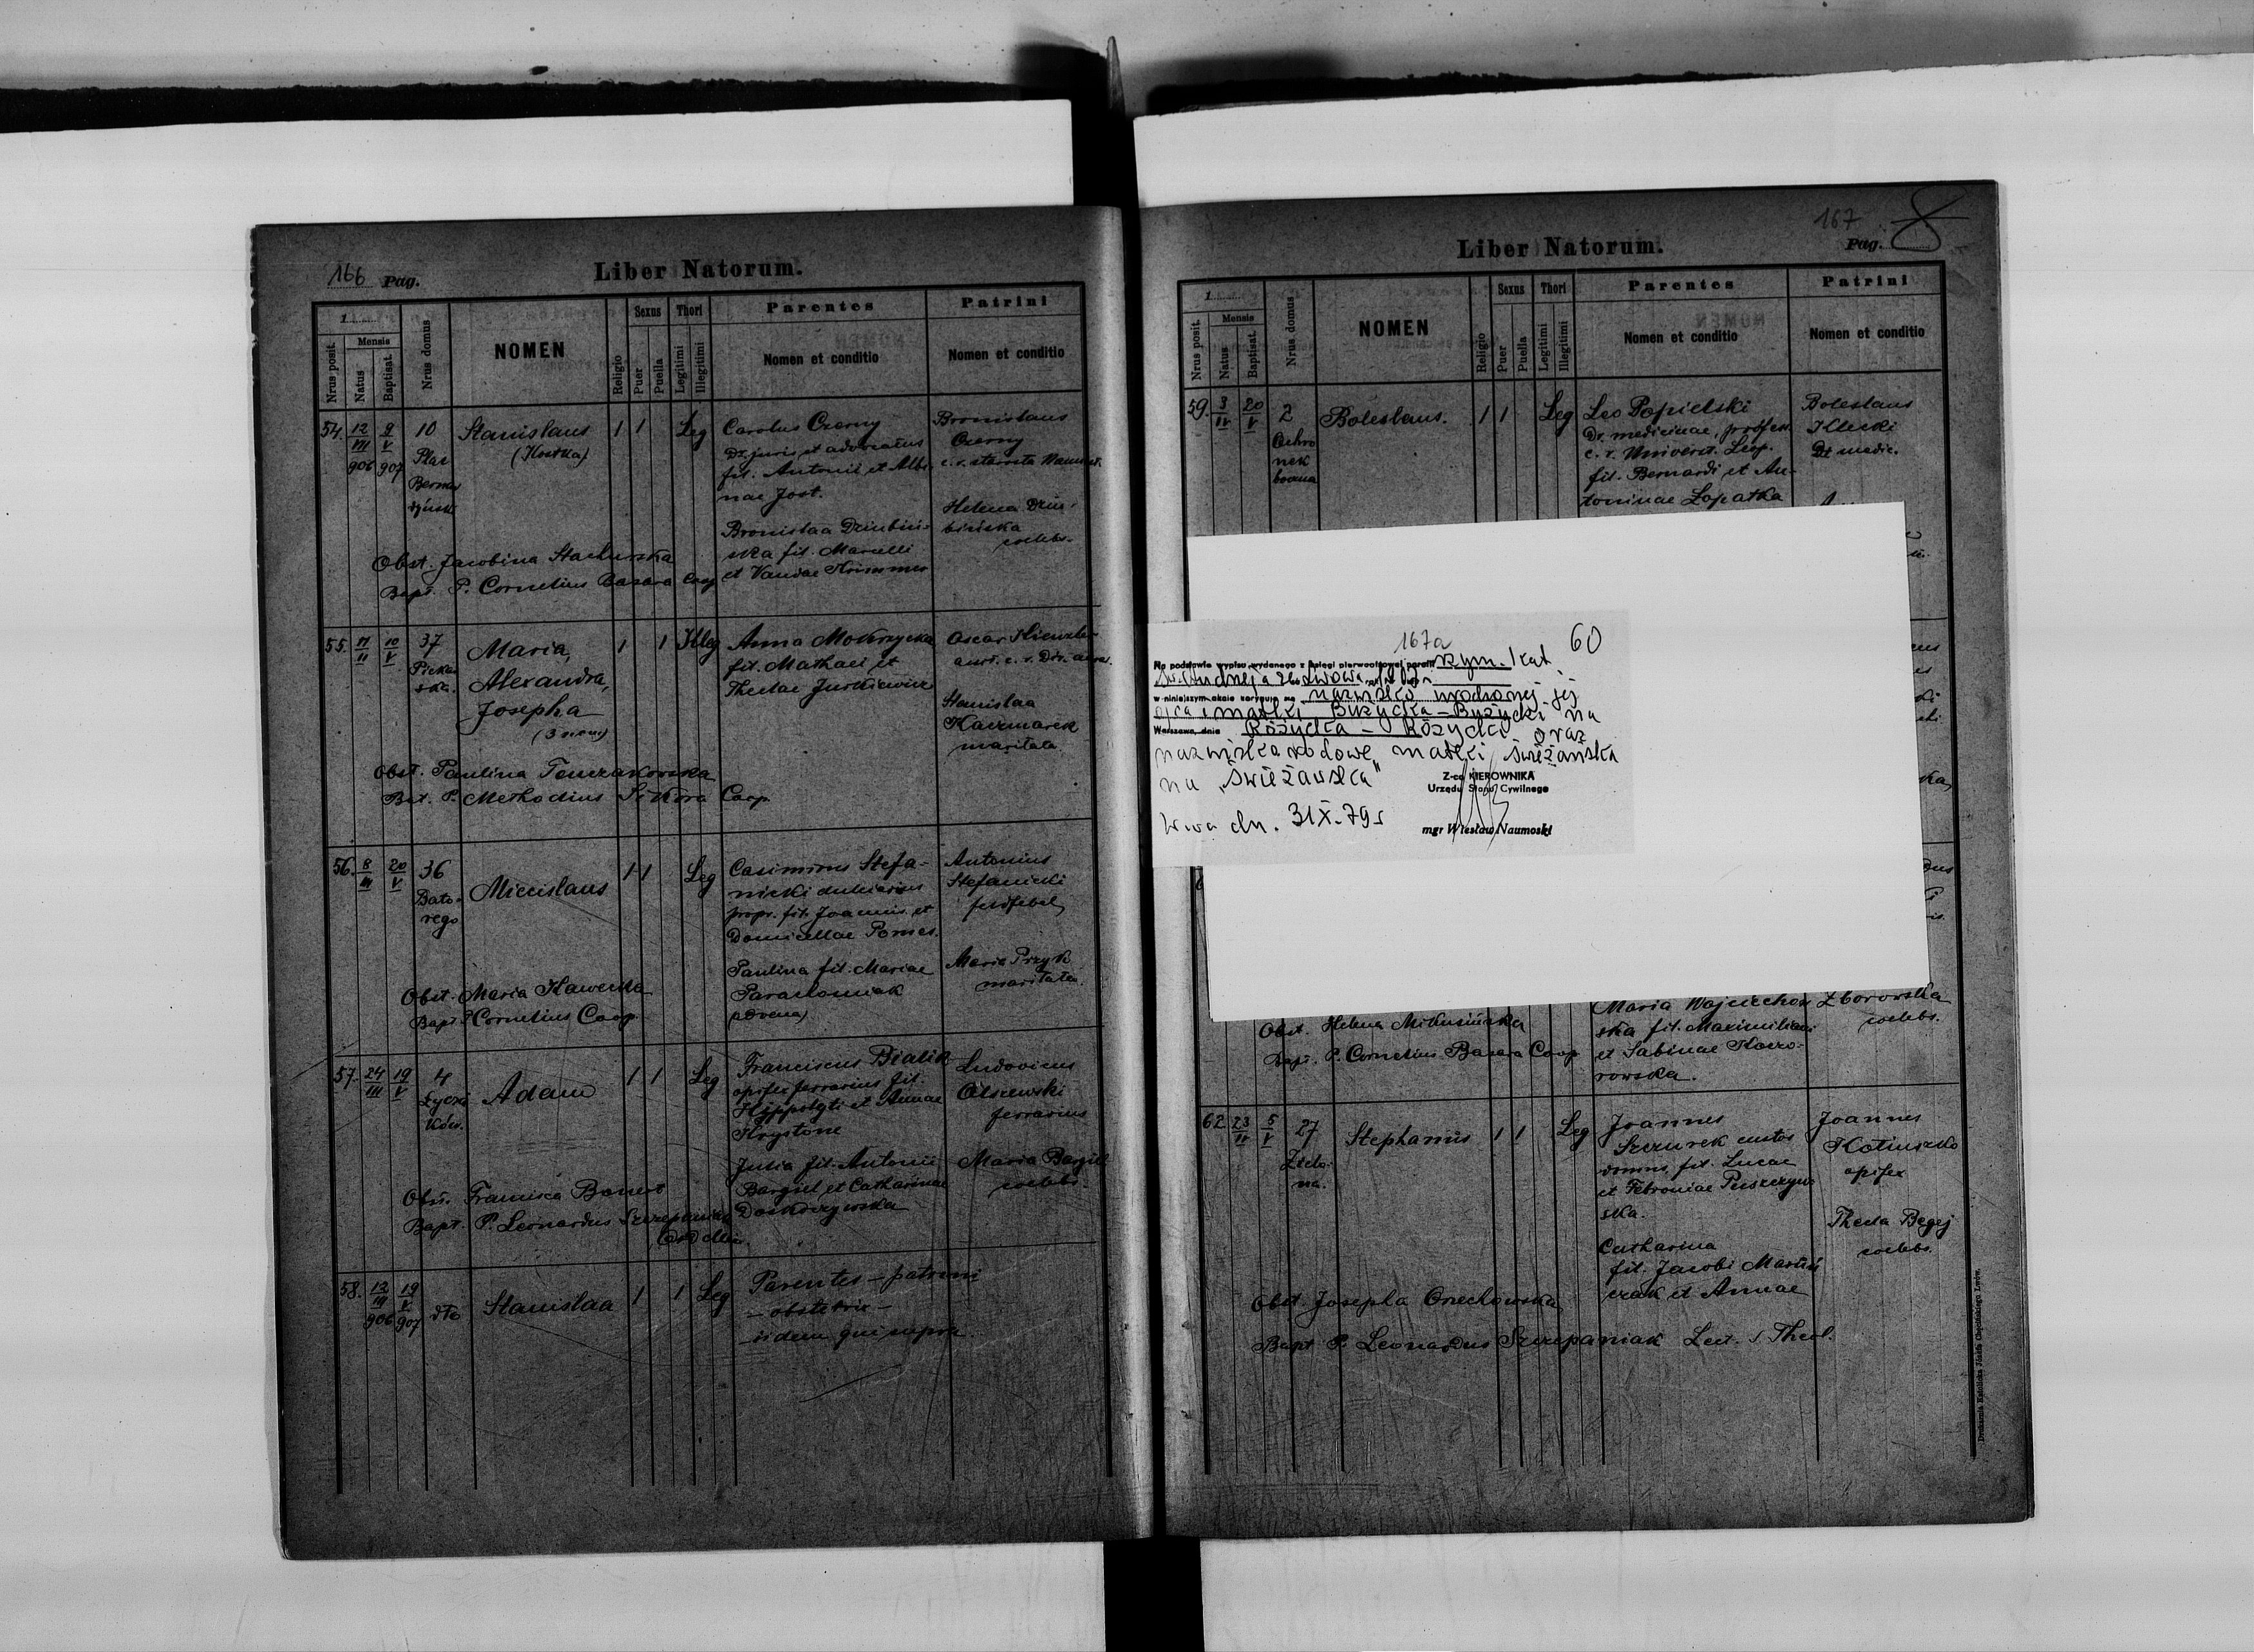 166 Pag.
Liber Natorum.
1.........
Nrus posit.
Mensis
Natus
Baptisat.
Nrus domus
NOMEN
Religio
Sexus
Puer
Puella
Thori
Legitimi
Illegitimi
Parentes
Nomen et conditio
Patrini
Nomen et conditio
54. 12/VII 906 9/V 907
10
Plac
Bernar
dyński
Stanislaus
(Kostka)
1 1 Leg
Carolus Czerny
Dr. juris et advocatus
fil. Antonii et Albi-
nae Jost.
Bronislaa Dziubiń-
ska fil. Marcelli
et Vandae Krimmer
Bronislaus
Czerny
c. r. starosta
Helena Dziu-
bińska
coelebs.
Obst. Jacobina Stachurska
Bapt. P. Cornelius Basara Coop
55. 17/II 10/V
37
Piekar
ska.
Maria,
Alexandra,
Josepha
1 1 Illeg
Anna Mokrzycka
fil. Mathaei et
Theclae Jurkiewicz
Oscar
Stanislaa
Kaczmarek
maritata
Obst. Paulina Tenczakowska
Bat. P. Methodius Sikora Coop.
56. 8/III 20/V
36
Bato-
rego
Miecislaus
1 1 Leg
Casimirus Stefa-
nicki
fil. Joannis et
Domicellae
Paulina fil. Mariae
Antonius
Stefanicki
feldfebel
Maria Przyk
maritata
Obst. Maria
Bapt. P. Cornelius Coop.
57. 24/III 19/V
4
Łycza
ków.
Adam
1 1 Leg
Franciscus Bialik
opifex ferrarius fil.
Hyppolyti et Annae
Krystone
Julia fil. Antonii
Bargiel et Catharinae
Ludovicus
Olszewski
ferrarius
Maria Bargiel
coelebs.
Obst. Francisca
Bapt. P. Leonardus Szczepaniak
58. 12/III 906 19/V 907
dto
Stanislaa
1 1 Leg
Parentes – patrini
– obstetrix –
– iidem qui supra.
167
Pag. 8
Liber Natorum.
1.........
Nrus posit.
Mensis
Natus
Baptisat.
Nrus domus
NOMEN
Religio
Sexus
Puer
Puella
Thori
Legitimi
Illegitimi
Parentes
Nomen et conditio
Patrini
Nomen et conditio
59. 3/IV 20/V
2
Ochro
nek
boczna
Boleslaus.
1 1 Leg
Leo Popielski
Dr. medicinae, profess.
c. r. Universit. Leop.
fil. Bernardi et An-
toninae Łopatka
Boleslaus
Klecki
Dr medic.
167a
60
Na podstawie wypisu wydanego z księgi pierwopisowej parafii rzym. kat.
św. Andrzeja we Lwowie
w niniejszym akcie koryguje się nazwisko urodzonej jej
ojca i matki Bużycka – Bużycki na
Warszawa, dnia Różycka – Różycki oraz
nazwiska rodowe matki Świeżańska
na „Świeżawska"
W-wa dn. 31 X. 79 r
Z-ca KIEROWNIKA
Urzędu Stanu Cywilnego
mgr Wiesław Naumoski
Maria Wojciechow
ska fil. Maximiliani
et Sabinae
rowska.
Zborowska
coelebs.
Obst. Helena Mikusińska
Bapt. P. Cornelius Basara Coop
62 23/IV 5/V
27
Zielo-
na.
Stephanus
1 1 Leg
Joannes
Szczurek custos
domus, fil. Lucae
et Febroniae Puszczyń
ska.
Catharina
fil. Jacobi Marcin
czak et Annae
Joannes
Kotiuszko
opifex
Thecla Begej
coelebs.
Obst. Josepha Orzechowska
Bapt P. Leonardus Szczepaniak Lect. S. Theol.
Drukarnia Katolicka Józefa Chęcińskiego Lwów.